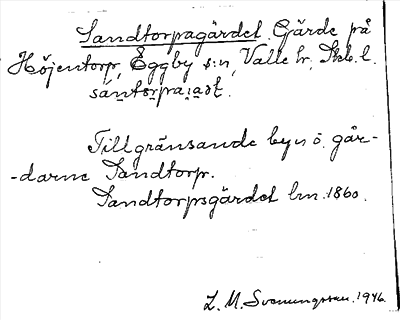 Sandtorpagärdet. Gärde på
Höjentorp, Eggby s:n, Valle hr, Skb. l.
Tillgränsande byn o. går-
-darne Sandtorp.
Sandtorpsgärdet lm. 1860.
L. M. Svenungsson. 1946.